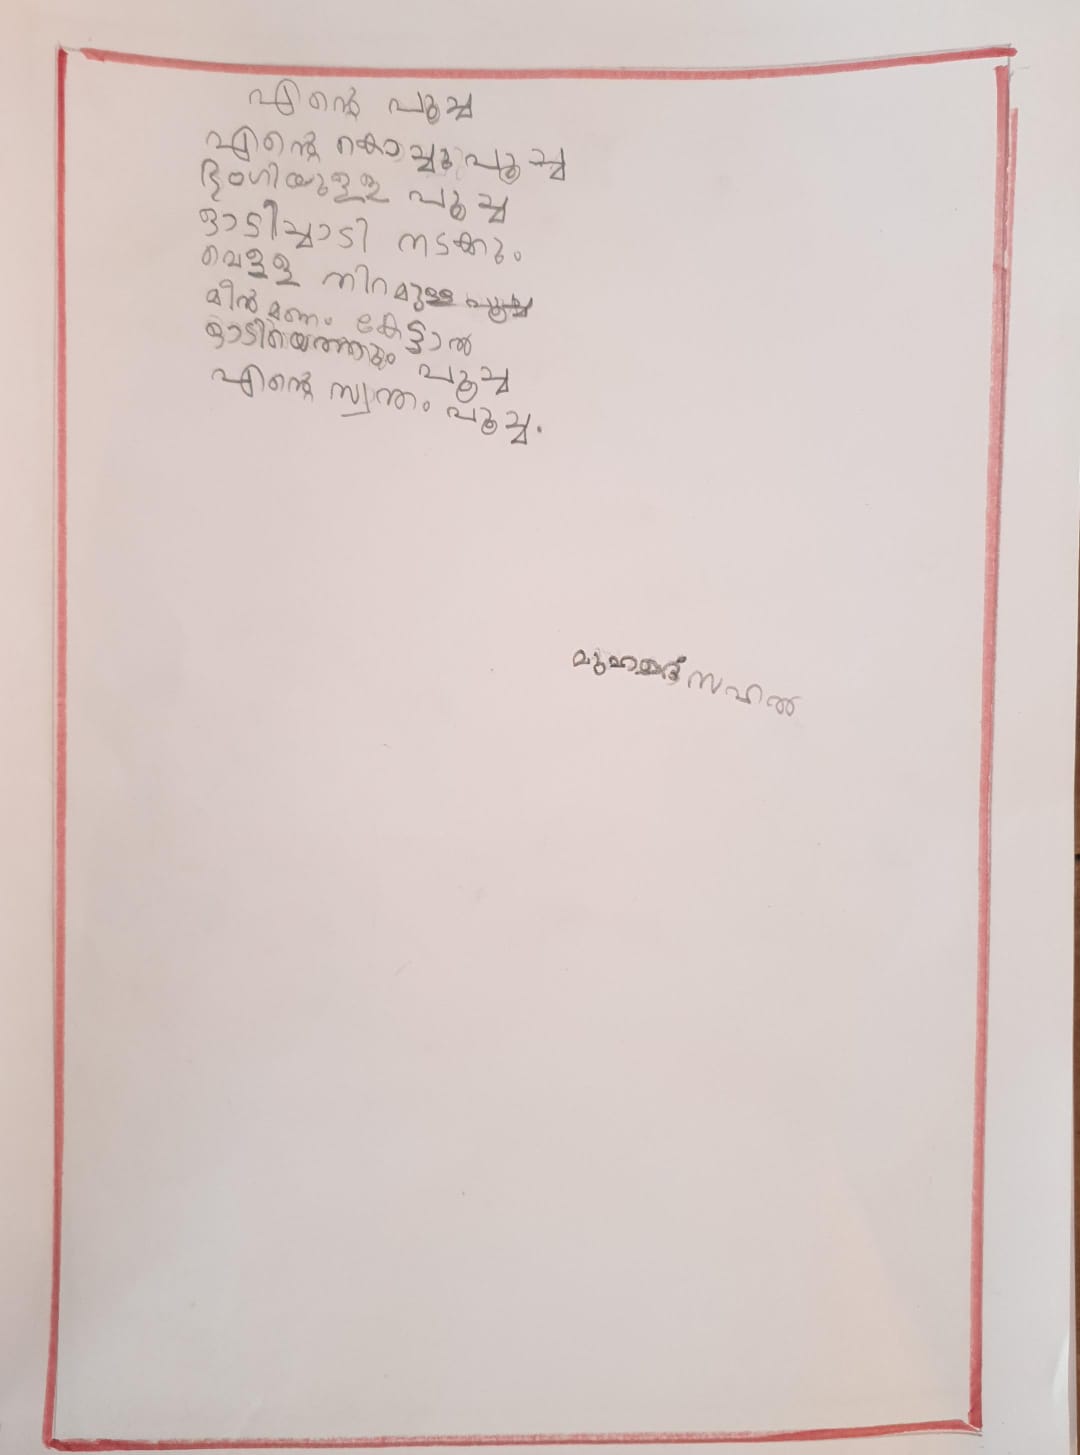 എന്റെ പൂച്ച
എന്റെ കൊച്ചു പൂച്ച
ഭംഗിയുള്ള പൂച്ച
ഓടിച്ചാടി നടക്കും
വെള്ള നിറമുള്ള പൂച്ച
മീൻ മണം കേട്ടാൽ
ഓടിയെത്തും പൂച്ച
എന്റെ സ്വന്തം പൂച്ച.
മുഹമ്മദ് സഹൽ